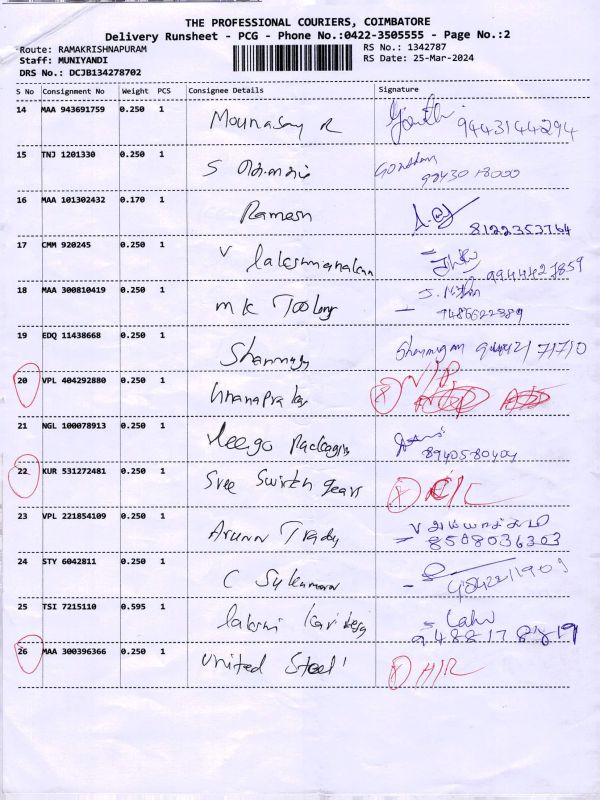 THE PROFESSIONAL COURIERS, COIMBATORE
Delivery Runsheet - PCG - Phone No.:0422-3505555 - Page No.:2
Route: RAMAKRISHNAPURAM
RS No.: 1342787
Staff: MUNIYANDI
RS Date: 25-Mar-2024
DRS No.: DCJB134278702
S No Consignment No Weight PCS Consignee Details Signature
14 MAA 943691759 0.250 1 Mounasamy R 9443144294
15 TNJ 1201330 0.250 1 S
16 MAA 101302432 0.170 1 Ramesh 8122353764
17 CMM 920245 0.250 1 V Lakshmanakan 9944427859
18 MAA 300810419 0.250 1 MK Tooling
19 EDQ 11438668 0.250 1 Shanmuga Shanmugam
20 VPL 404292880 0.250 1 X
21 NGL 100078913 0.250 1 8940580404
22 KUR 531272481 0.250 1 Sree Switch gears X
23 VPL 221854109 0.250 1 Arunn Trady 8508036303
24 STY 6042811 0.250 1 C Sukumaran
25 TSI 7215110 0.595 1
26 MAA 300396366 0.250 1 United Steel X